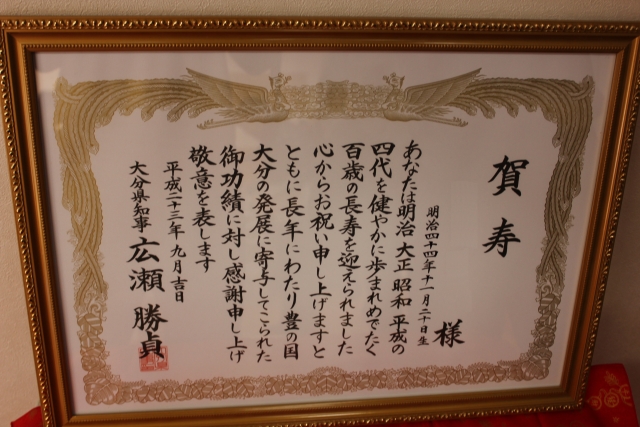 賀寿
様
明治四十四年十一月二十日生
あなたは明治 大正 昭和 平成の
四代を健やかに歩まれめでたく
百歳の長寿を迎えられました
心からお祝い申し上げますと
ともに長年にわたり豊の国
大分の発展に寄与してこられた
御功績に対し感謝申し上げ
敬意を表します
平成二十三年九月吉日
大分県知事 広瀬勝貞